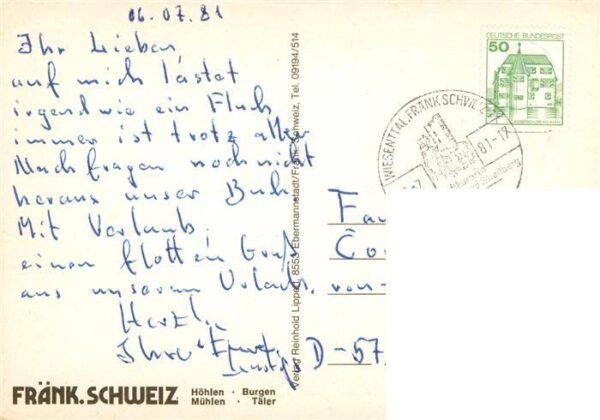 06.07.81
Ihr Lieben
auf mich lastet
irgendwie ein Fluch
immer ist trotz aller
Nachfragen noch nicht
heraus unser Buch.
Mit Verlaub:
einen flotten Gruß
aus unserem Urlaub,
Herzl.
Ihre
DEUTSCHE BUNDESPOST
50
WIESENTTAL, FRÄNK. SCHWEIZ
81-12
Fa
Co
von-
D-57
Verlag Reinhold Lippert, 8553 Ebermannstadt/Fränk. Schweiz, Tel. 09194/514
FRÄNK. SCHWEIZ
Höhlen · Burgen
Mühlen · Täler